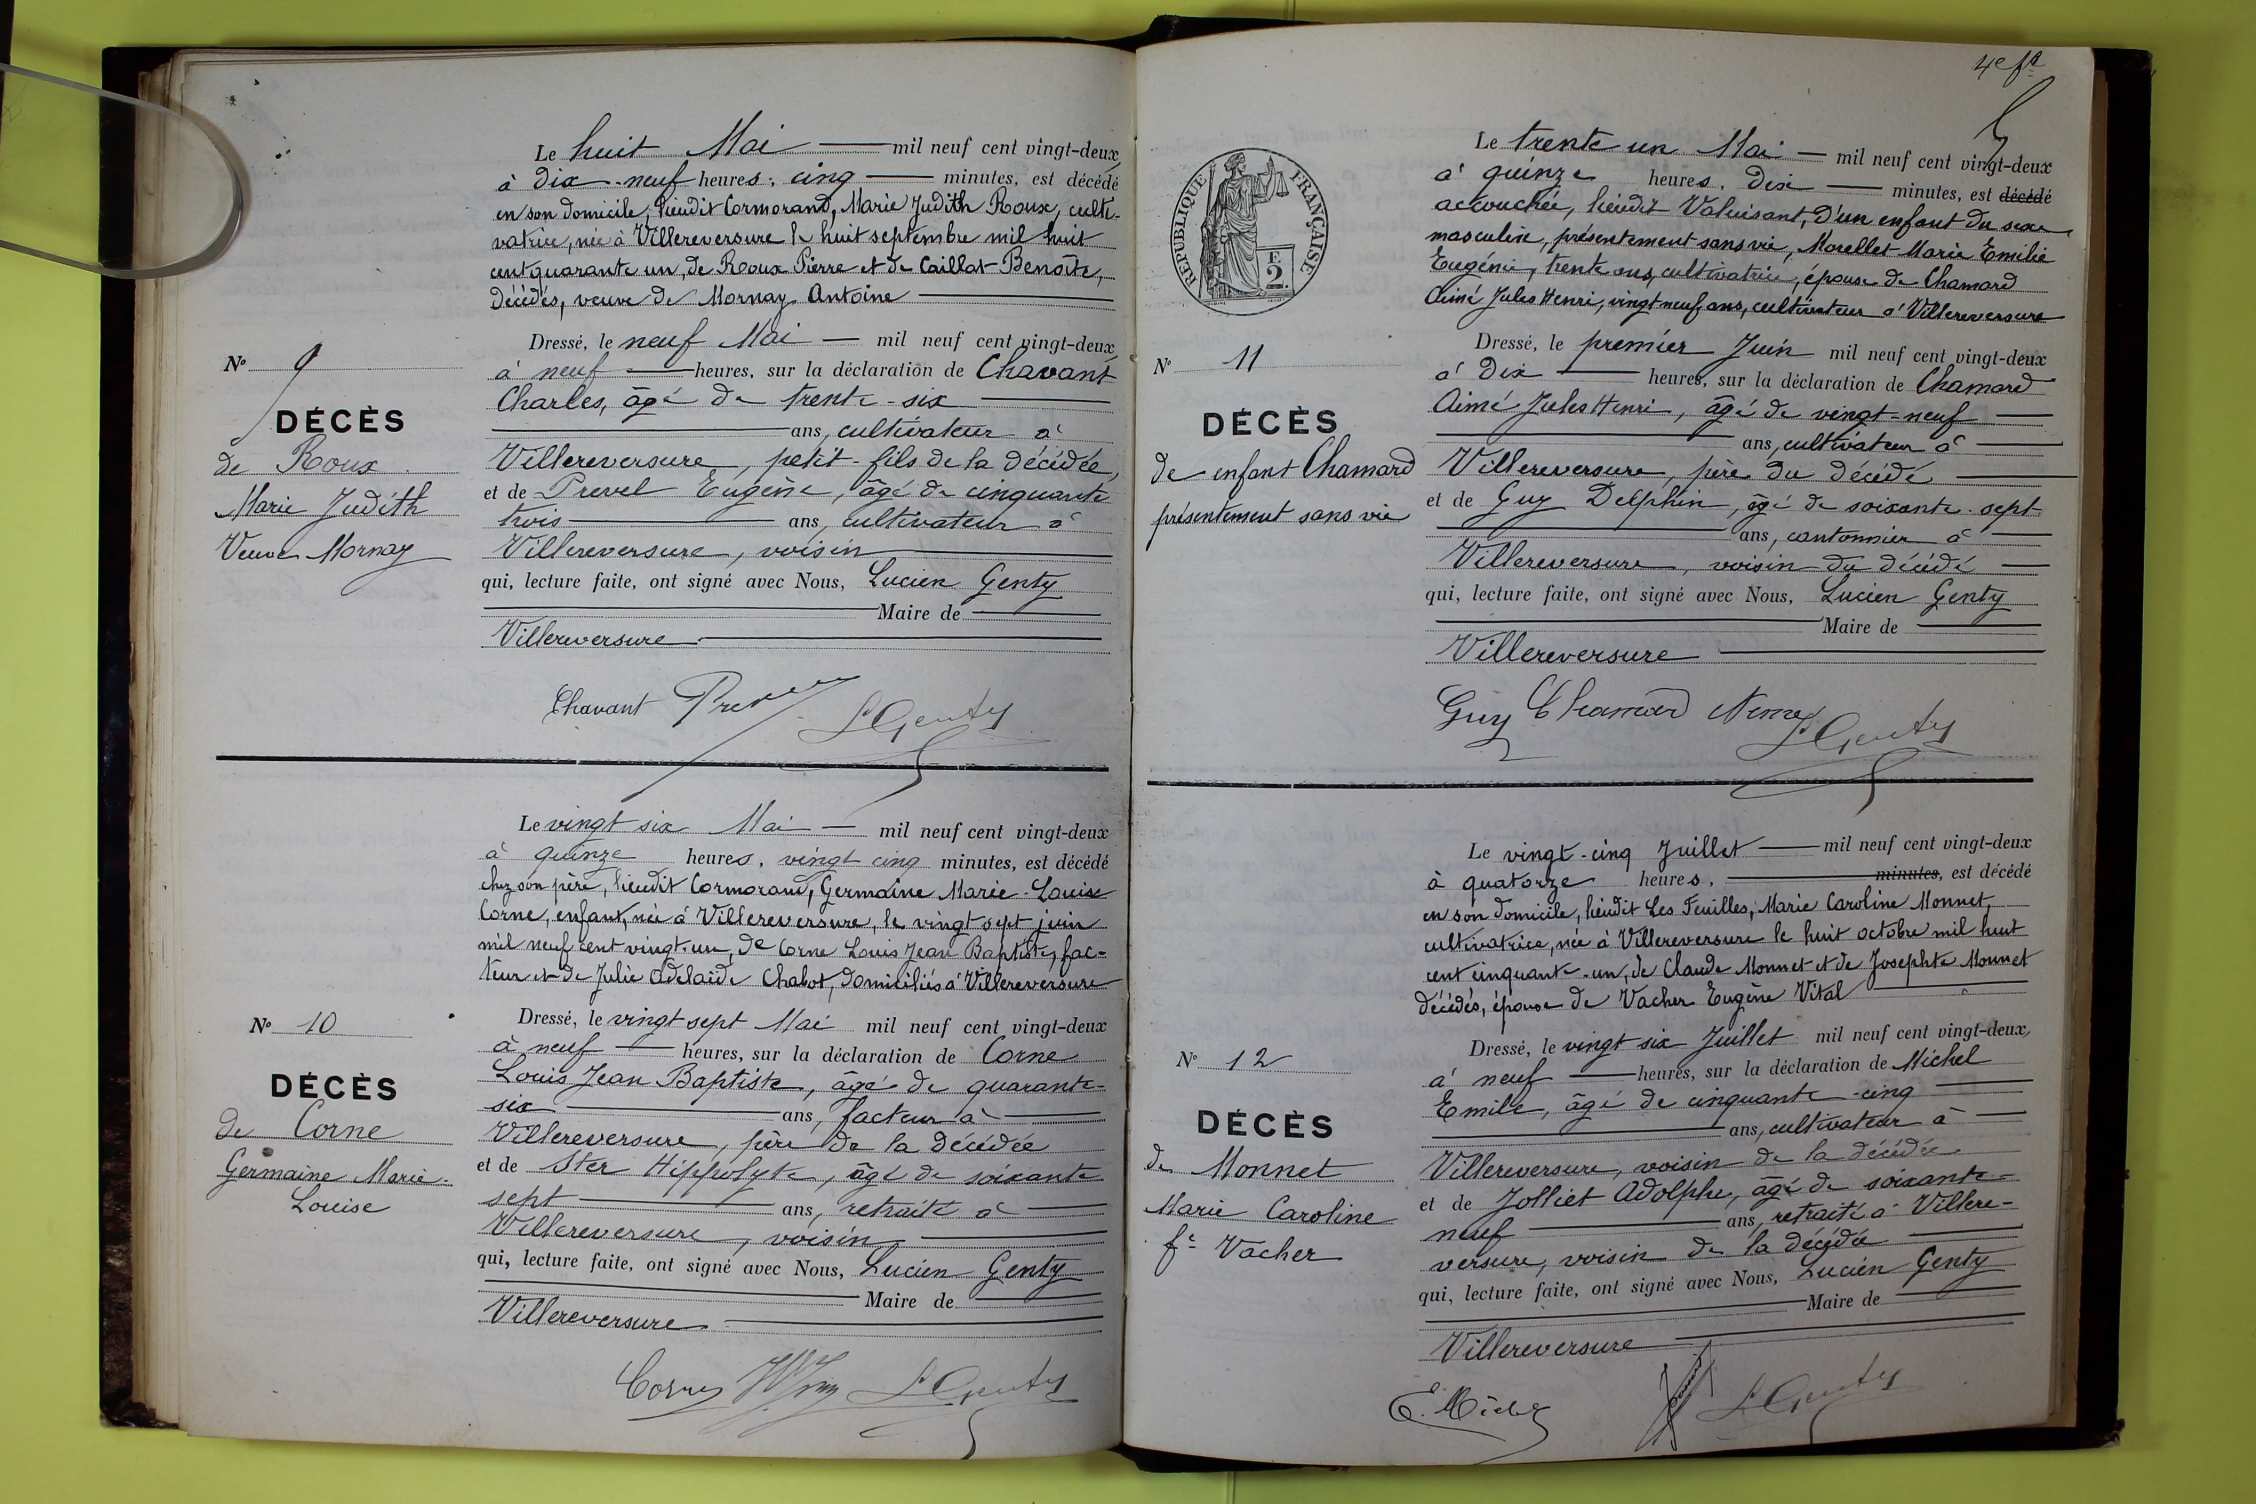 Le huit Mai mil neuf cent vingt-deux
à dix-neuf heures, cinq minutes, est décédé
en son domicile, lieudit Cormorand, Marie Judith Roux, culti-
vatrice, née à Villereversure le huit septembre mil huit
cent quarante un, de Roux Pierre et de Caillat Benoîte,
décédés, veuve de Mornay Antoine
Dressé, le neuf Mai mil neuf cent vingt-deux
à neuf heures, sur la déclaration de Chavant
Charles, âgé de trente-six
ans, cultivateur à
Villereversure, petit-fils de la décédée,
et de Prevel Eugène, âgé de cinquante
trois ans, cultivateur à
Villereversure, voisin
qui, lecture faite, ont signé avec Nous, Lucien Genty
Maire de
Villereversure
Nº 9
DÉCÈS
de Roux
Marie Judith
Veuve Mornay
Chavant L Genty
Le vingt six Mai mil neuf cent vingt-deux
à quinze heures, vingt cinq minutes, est décédé
chez son père, lieudit Cormorand, Germaine Marie-Louise
Corne, enfant, née à Villereversure, le vingt sept juin
mil neuf cent vingt-un, de Corne Louis Jean Baptiste, fac-
teur et de Julie Adelaïde Chabot, domiciliés à Villereversure
Dressé, le vingt sept Mai mil neuf cent vingt-deux
à neuf heures, sur la déclaration de Corne
Louis Jean Baptiste, âgé de quarante-
six ans, facteur à
Villereversure, père de la décédée
et de Ster Hippolyte, âgé de soixante
sept ans, retraité à
Villereversure, voisin
qui, lecture faite, ont signé avec Nous, Lucien Genty
Maire de
Villereversure
Nº 10
DÉCÈS
de Corne
Germaine Marie-
Louise
L Genty
4e ft
RÉPUBLIQUE FRANÇAISE
F
2
Le trente un Mai mil neuf cent vingt-deux
à quinze heures, Dix minutes, est décédé
accouchée, lieudit Valuisant, d'un enfant du sexe
masculin, présentement sans vie, Morellet Marie Emilie
Eugénie, trente ans, cultivatrice, épouse de Chamard
Aimé Jules Henri, vingt-neuf ans, cultivateur à Villereversure
Dressé, le premier Juin mil neuf cent vingt-deux
à Dix heures, sur la déclaration de Chamard
Aimé Jules Henri, âgé de vingt-neuf
ans, cultivateur à
Villereversure, père du décédé
et de Guy Delphin, âgé de soixante-sept
ans, cantonnier à
Villereversure, voisin du décédé
qui, lecture faite, ont signé avec Nous, Lucien Genty
Maire de
Villereversure
Nº 11
DÉCÈS
de enfant Chamard
présentement sans vie
Guy Chamard L Genty
Le vingt-cinq Juillet mil neuf cent vingt-deux
à quatorze heures, minutes, est décédé
en son domicile, lieudit Les Feuilles, Marie Caroline Monnet,
cultivatrice, née à Villereversure le huit octobre mil huit
cent cinquante-un, de Claude Monnet et de Josephte Monnet
décédés, épouse de Vacher Eugène Vital
Dressé, le vingt six Juillet mil neuf cent vingt-deux,
à neuf heures, sur la déclaration de Michel
Emile, âgé de cinquante-cinq
ans, cultivateur à
Villereversure, voisin de la décédée
et de Jolliet Adolphe, âgé de soixante-
neuf ans, retraité à Villere-
versure, voisin de la décédée
qui, lecture faite, ont signé avec Nous, Lucien Genty
Maire de
Villereversure
Nº 12
DÉCÈS
de Monnet
Marie Caroline
fe Vacher
E. Michel L Genty